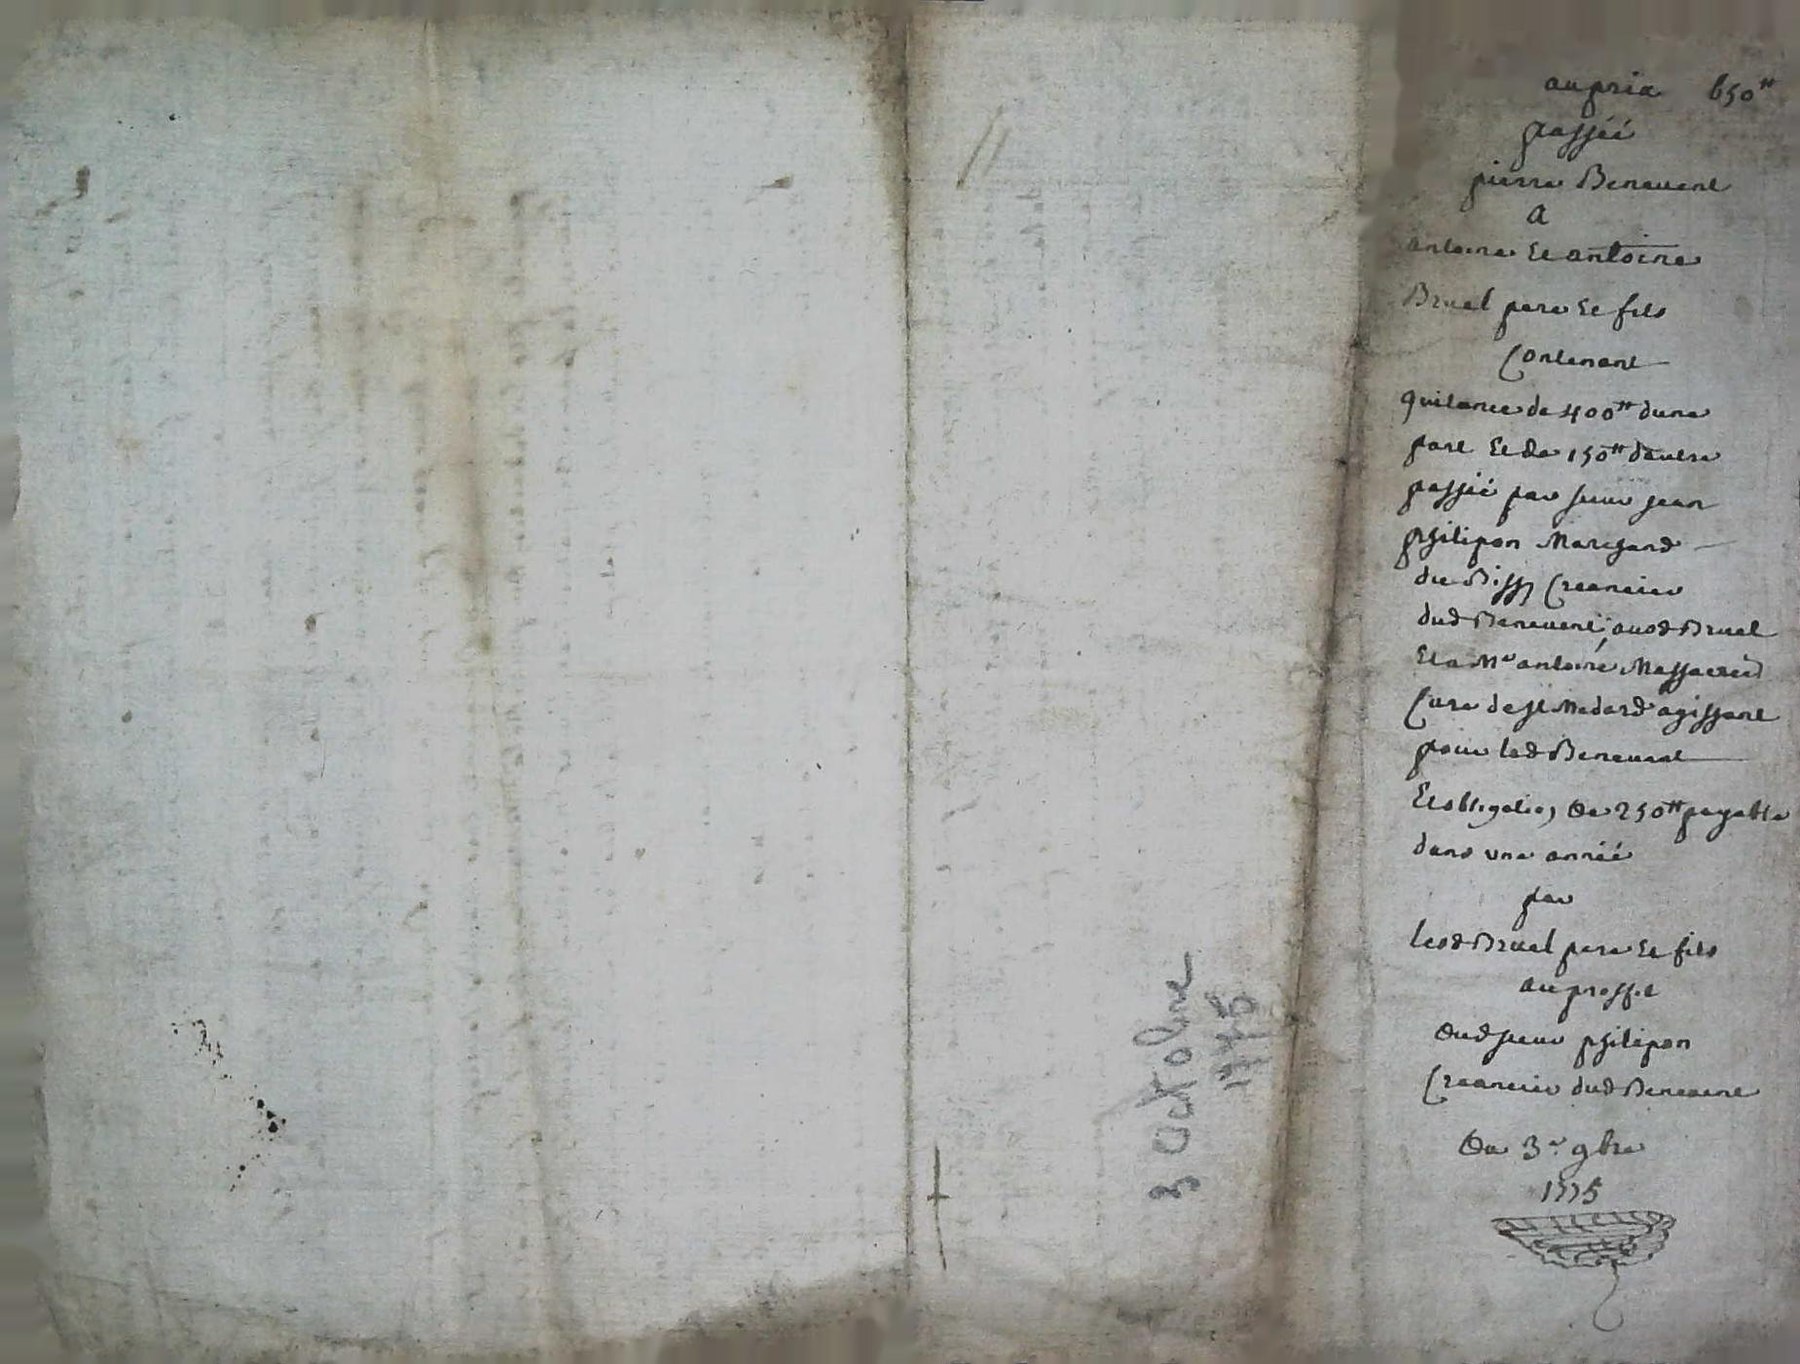 au prix 650tt
passéé
pierre Benevent
A
antoine Et antoine
Bruel pere Et fils
Contenant
quitance de 400tt dune
part Et de 150tt dautre
passéé par sieur jean
philipon Marchand
du Creancier
dud Benevent, ausd Bruel
Et a Me antoine
Cure de st Medard agissant
pour led Benevent
Et obligation De 250tt payable
dans une annéé
par
lesd Bruel pere Et fils
au proffit
Dud sieur philipon
Creancier dud Benevent
Du 3e 9bre
1775
3 Octobre
1775